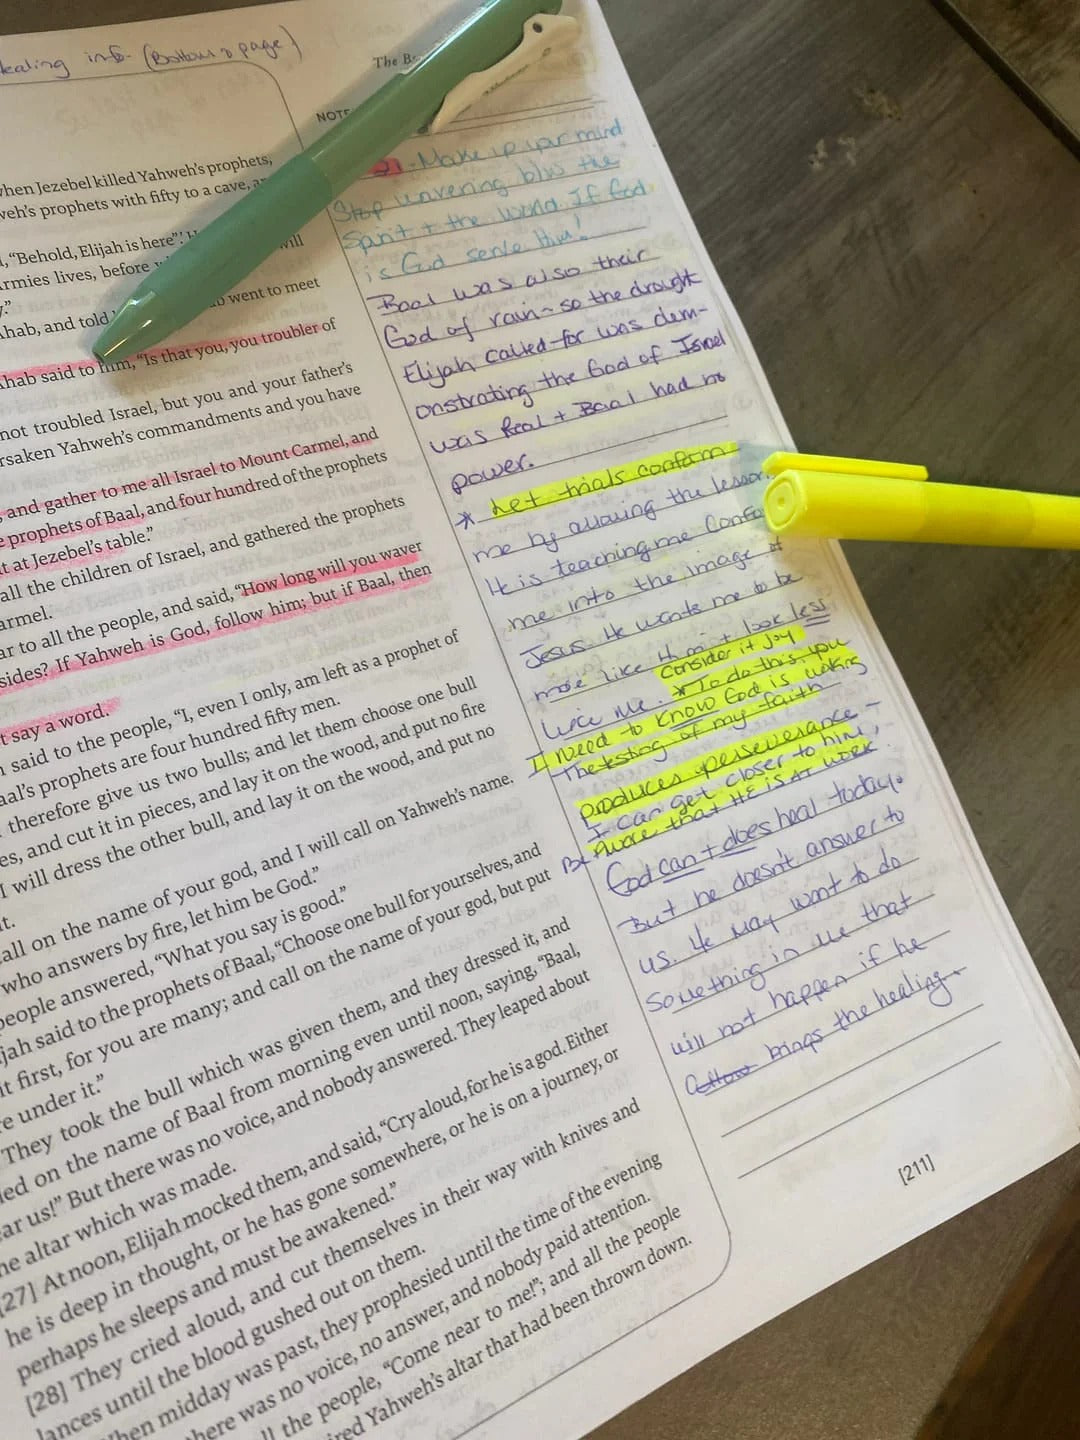 ealing info- (Bottom of page)
The B
NOTE
when Jezebel killed Yahweh's prophets,
weh's prophets with fifty to a cave, a
, "Behold, Elijah is here"'.
will
Armies lives, before
y."
hab, and told
went to meet
Ahab said to him, "Is that you, you troubler of
not troubled Israel, but you and your father's
rsaken Yahweh's commandments and you have
, and gather to me all Israel to Mount Carmel, and
e prophets of Baal, and four hundred of the prophets
t at Jezebel's table."
all the children of Israel, and gathered the prophets
armel.
ar to all the people, and said, "How long will you waver
sides? If Yahweh is God, follow him; but if Baal, then
t say a word.
said to the people, "I, even I only, am left as a prophet of
aal's prophets are four hundred fifty men.
therefore give us two bulls; and let them choose one bull
es, and cut it in pieces, and lay it on the wood, and put no fire
I will dress the other bull, and lay it on the wood, and put no
it.
call on the name of your god, and I will call on Yahweh's name.
who answers by fire, let him be God."
people answered, "What you say is good."
jah said to the prophets of Baal, "Choose one bull for yourselves, and
it first, for you are many; and call on the name of your god, but put
re under it."
They took the bull which was given them, and they dressed it, and
led on the name of Baal from morning even until noon, saying, "Baal,
ar us!" But there was no voice, and nobody answered. They leaped about
he altar which was made.
[27] At noon, Elijah mocked them, and said, "Cry aloud, for he is a god. Either
he is deep in thought, or he has gone somewhere, or he is on a journey, or
perhaps he sleeps and must be awakened."
[28] They cried aloud, and cut themselves in their way with knives and
lances until the blood gushed out on them.
hen midday was past, they prophesied until the time of the evening
here was no voice, no answer, and nobody paid attention.
ll the people, "Come near to me!"; and all the people
ired Yahweh's altar that had been thrown down.
21 - Make up your mind
Stop wavering b/w the
Spirit + the world. If God
is God serve Him!
Baal was also their
God of rain - so the drought
Elijah called for was dem-
onstrating the God of Israel
was Real + Baal had no
power.
* Let trials conform
me by allowing the lesson
It is teaching me Confo
me into the image of
Jesus. He wants me to be
more like Him + look less
like me.
Consider it Joy
* To do this, you
I need to know God is working
The testing of my faith
produces perseverance -
I can get closer to him,
Be Aware that He is At work.
God can + does heal today.
But he doesn't answer to
us. He may want to do
Something in me that
will not happen if he
brings the healing
[211]